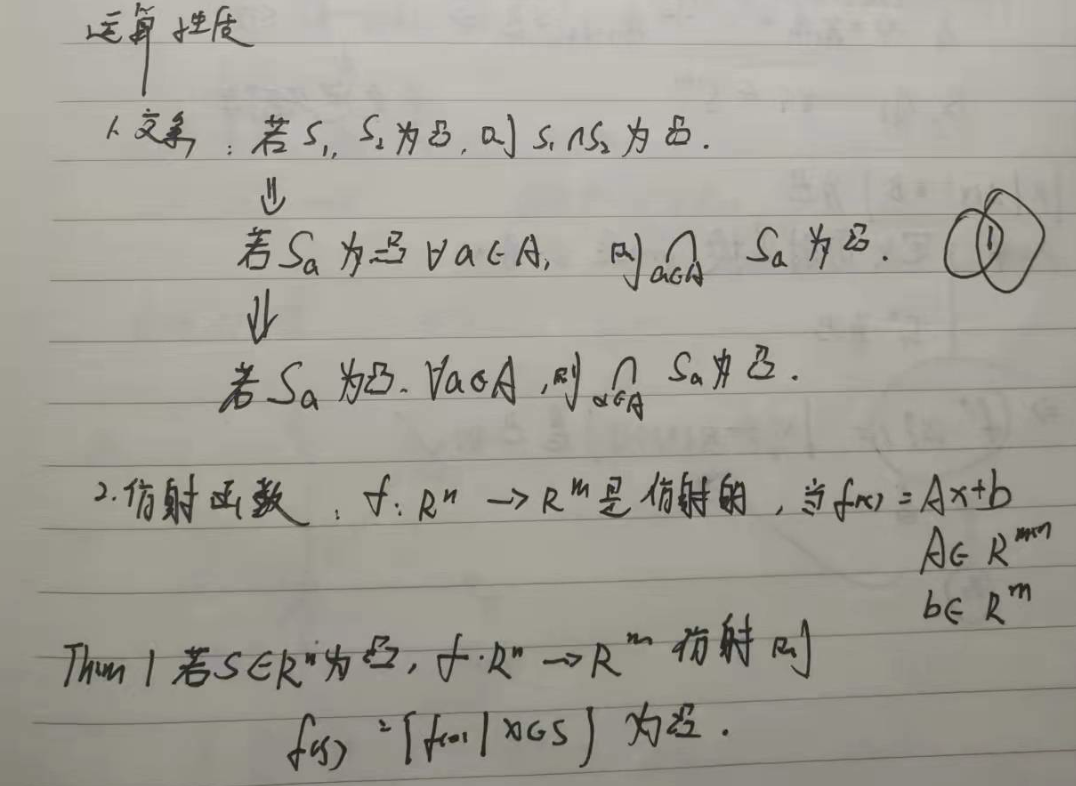 运算性质
1. 交集: 若 S₁, S₂ 为凸, 则 S₁∩S₂ 为凸.
⇓
若 Sₐ 为凸 ∀a∈A, 则 ⋂a∈A Sₐ 为凸.
⇓
若 Sₐ 为凸. ∀a∈A, 则 ⋂α∈A Sₐ 为凸.
2. 仿射函数: f: Rⁿ → Rᵐ 是仿射的, 当 f(x) = Ax+b
A∈ Rᵐˣⁿ
b∈ Rᵐ
Thm 1 若 S∈Rⁿ 为凸, f: Rⁿ → Rᵐ 仿射 则
f(S) = {f(x) | x∈S} 为凸.